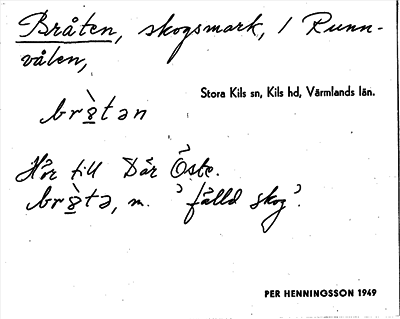 Bråten, skogsmark, i Runn-
vålen,
Stora Kils sn, Kils hd, Värmlands län.
brò̤tən
Hör till Där Öste.
brò̤tə, m. 'fälld skog'.
PER HENNINGSSON 1949